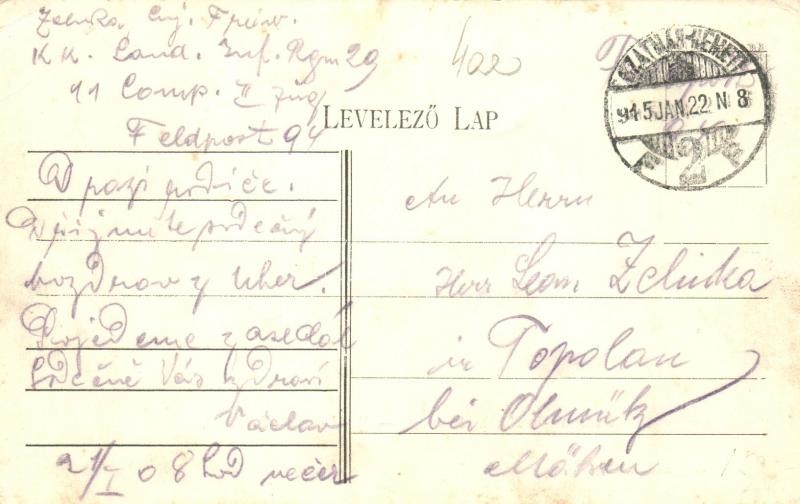 Zelinka Einj. Freiw.
K. K. Land. Inf. Rgm 29
11 Comp. II Zug
Feldpost 94
402
LEVELEZŐ LAP
SZATMÁR-NÉMETI
915 JAN. 22. N 8
2
Drazí rodiče.
Přijmute srdečný
pozdrav z Uher.
Pojedeme zase dál
Srdečně Vás zdraví
Václav
21/I o 8 hod večer
An Herrn
Herr Leon Zelinka
in Topolan
bei Olmütz
Mähren